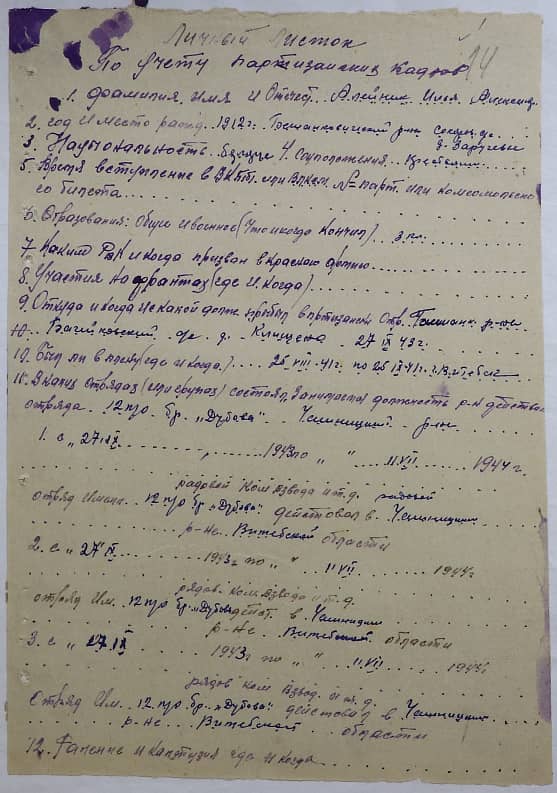 Личный Листок
По учету партизанских кадров 14
1. Фамилия, имя и отчест. Алейник Илья Александ.
2. год и место рожд. 1912 г. р-он
3. Национальность. белорус 4. Соцположения.
5. Время вступление в ВКПб. или ВЛКСМ. № парт. или комсомольско
го билета
6. Образования: Общие и военное (Что и когда Кончил) 3 кл.
7. Каким РВК и когда призван в красную армию
8. Участия на фронтах (где и когда)
9. Откуда и когда и с какой прибыл в партизанск. Отр. р-он
10. д. 27 IX 43 г.
10. Был ли в плену (где и когда.) 25 VIII-41 г. по 25 IX 41 г. г. Витебск
11. В каких отрядах (или группах) состоял, занимаемая должность р-н действия
отряда. 12 п/о бр. „Дубова“ Чашницкий р-он
1. с „27. IX 1943 по „ “ 11. VII 1944 г.
рядовой ком. взвода и т.д. рядовой
отряд Имени 12 п/о бр. „Дубова“ действовал в Чашницким
р-не. Витебской области
2. с „27“ IX 1943 г по „ “ 11 VII 1944
рядов. ком. взвода и т.д.
отряд Им. 12 п/о бр. „Дубова“ дейст. в Чашницким
р-не Витебской области
3. с „27. IX 1943 г по „ “ 11. VII. 1944
рядов ком взвод. и т.д.
Отряд Им. 12 п/о бр. „Дубова“ действовал в Чашницким
р-не Витебской области
12. Ранение и контузия где и когда